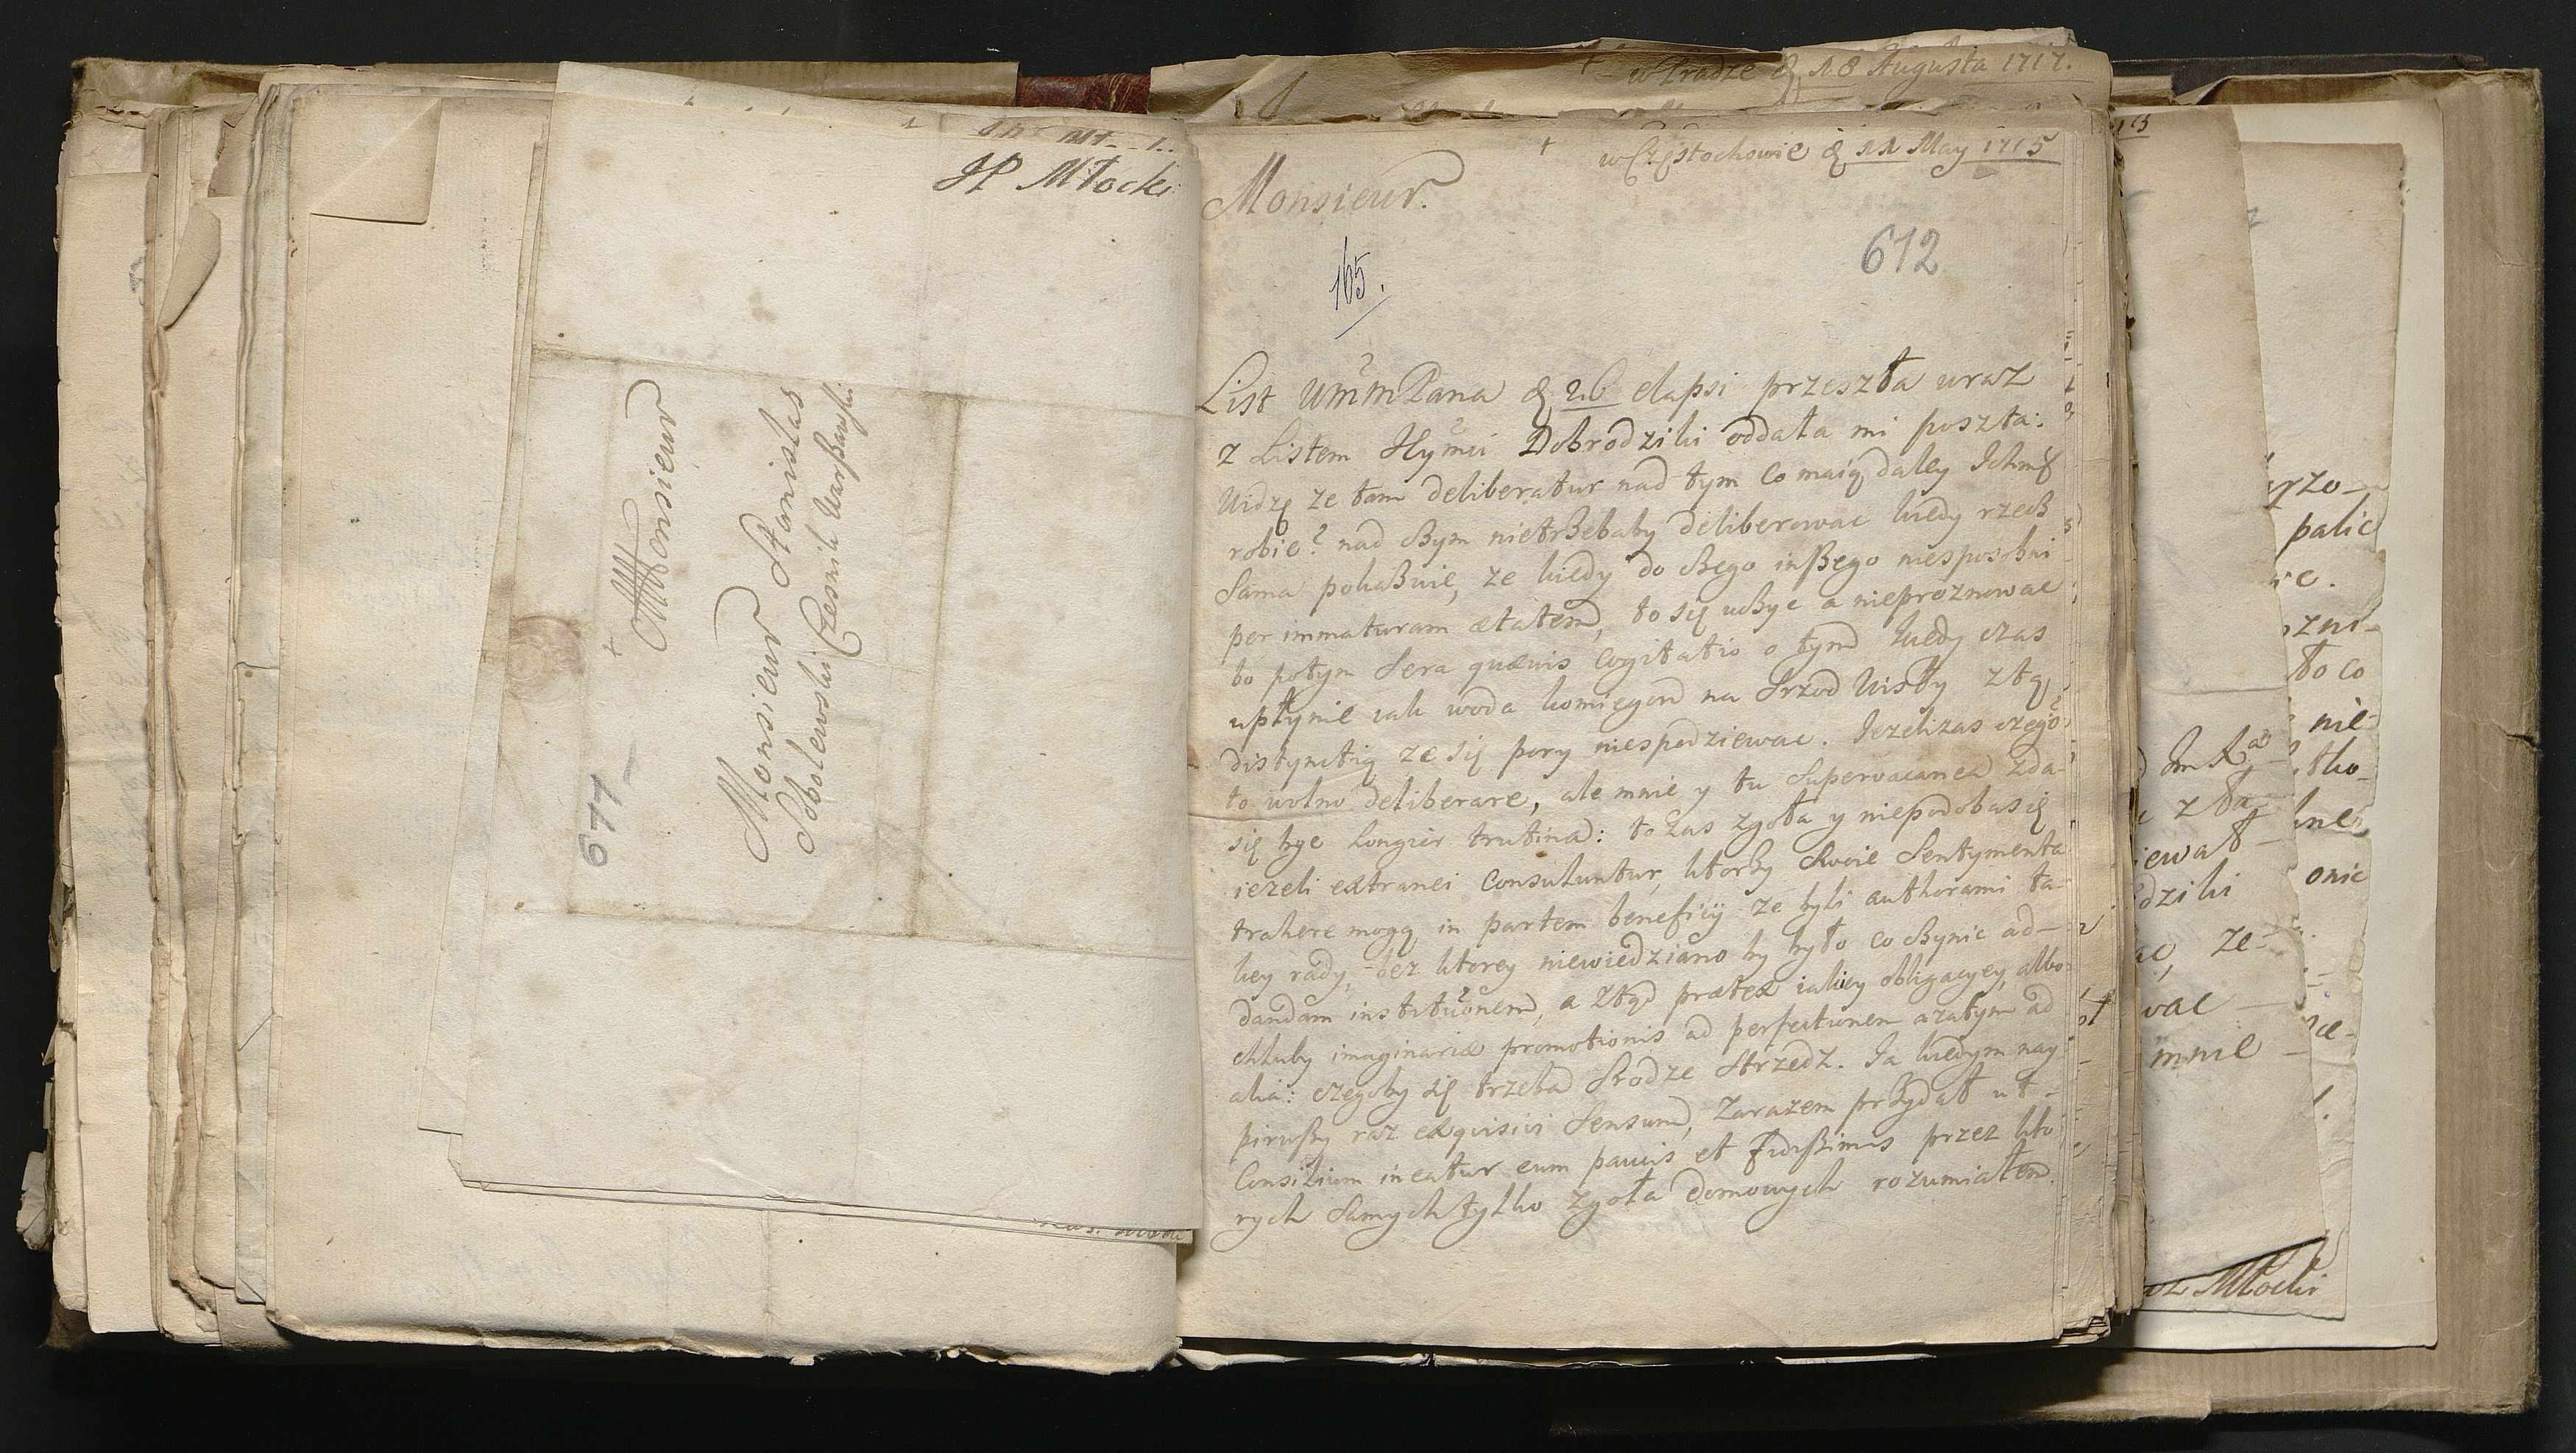 JP Młocki
677
Monsieur
Monsieur Stanislas
Sobolewski Czesnik Warszawski
w Pradze d 18 Augusta 1717.
w Częstochowie d 11 May 1715
Monsieur.
165.
612
List WMMPana d 26 elapsi przeszła wraz
z Listem JKeymci Dobrodziki oddała mi poszta:
Widzę ze tam deliberatur nad tym co maią daley Ichmć
robic? nad czym nietrzebaby deliberowac kiedy rzecz
Sama pokazuie, ze kiedy do czego inszego niesposobni
per immaturam ætatem, to się uczyc a nieproznowac
bo potym Sera quævis Cogitatio o tym kiedy czas
upłynie iak woda komięgom na Srzod Wisły z tą
distynctią ze się pory niespodziewac. Iezelizas czego
to wolno deliberare, ale mnie y tu Supervacanea zda-
się byc Longier trutina: to zas zgoła y niepodobasię
iezeli extranei Consuluntur, ktorzy Swoie Sentymenta
trahere mogą in partem beneficij ze byli authorami ta-
key rady, bez ktorey niewiedziano by było co czynic ad-
dandam institutionem, a ztąd prætex iakiey obligacyey, albo
chluby imaginariæ promotionis ad perfectionem azatym ad
alia: czegoby się trzeba Srodze Strzedz. Ia kiedym nay
pirwszy raz exquisivi Sensum, Zarazem przydał ut -
Consilium ineatur cum paucis et Fidissimis przez kto
rych Samych tylko zgoła domowych rozumiałem.
palic
to co
nie-
onic
ze-
wac
mnie
Młocki